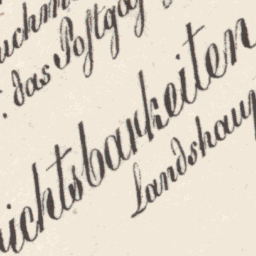 das Postga
ichtsbarkeiten
Landshau